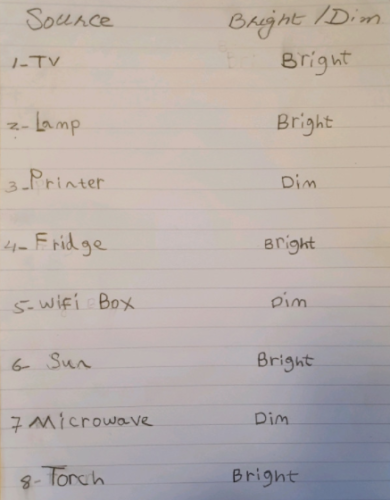 Source Bright/Dim
1-TV Bright
2-Lamp Bright
3-Printer Dim
4-Fridge Bright
5-Wifi Box Dim
6- Sun Bright
7 Microwave Dim
8-Torch Bright